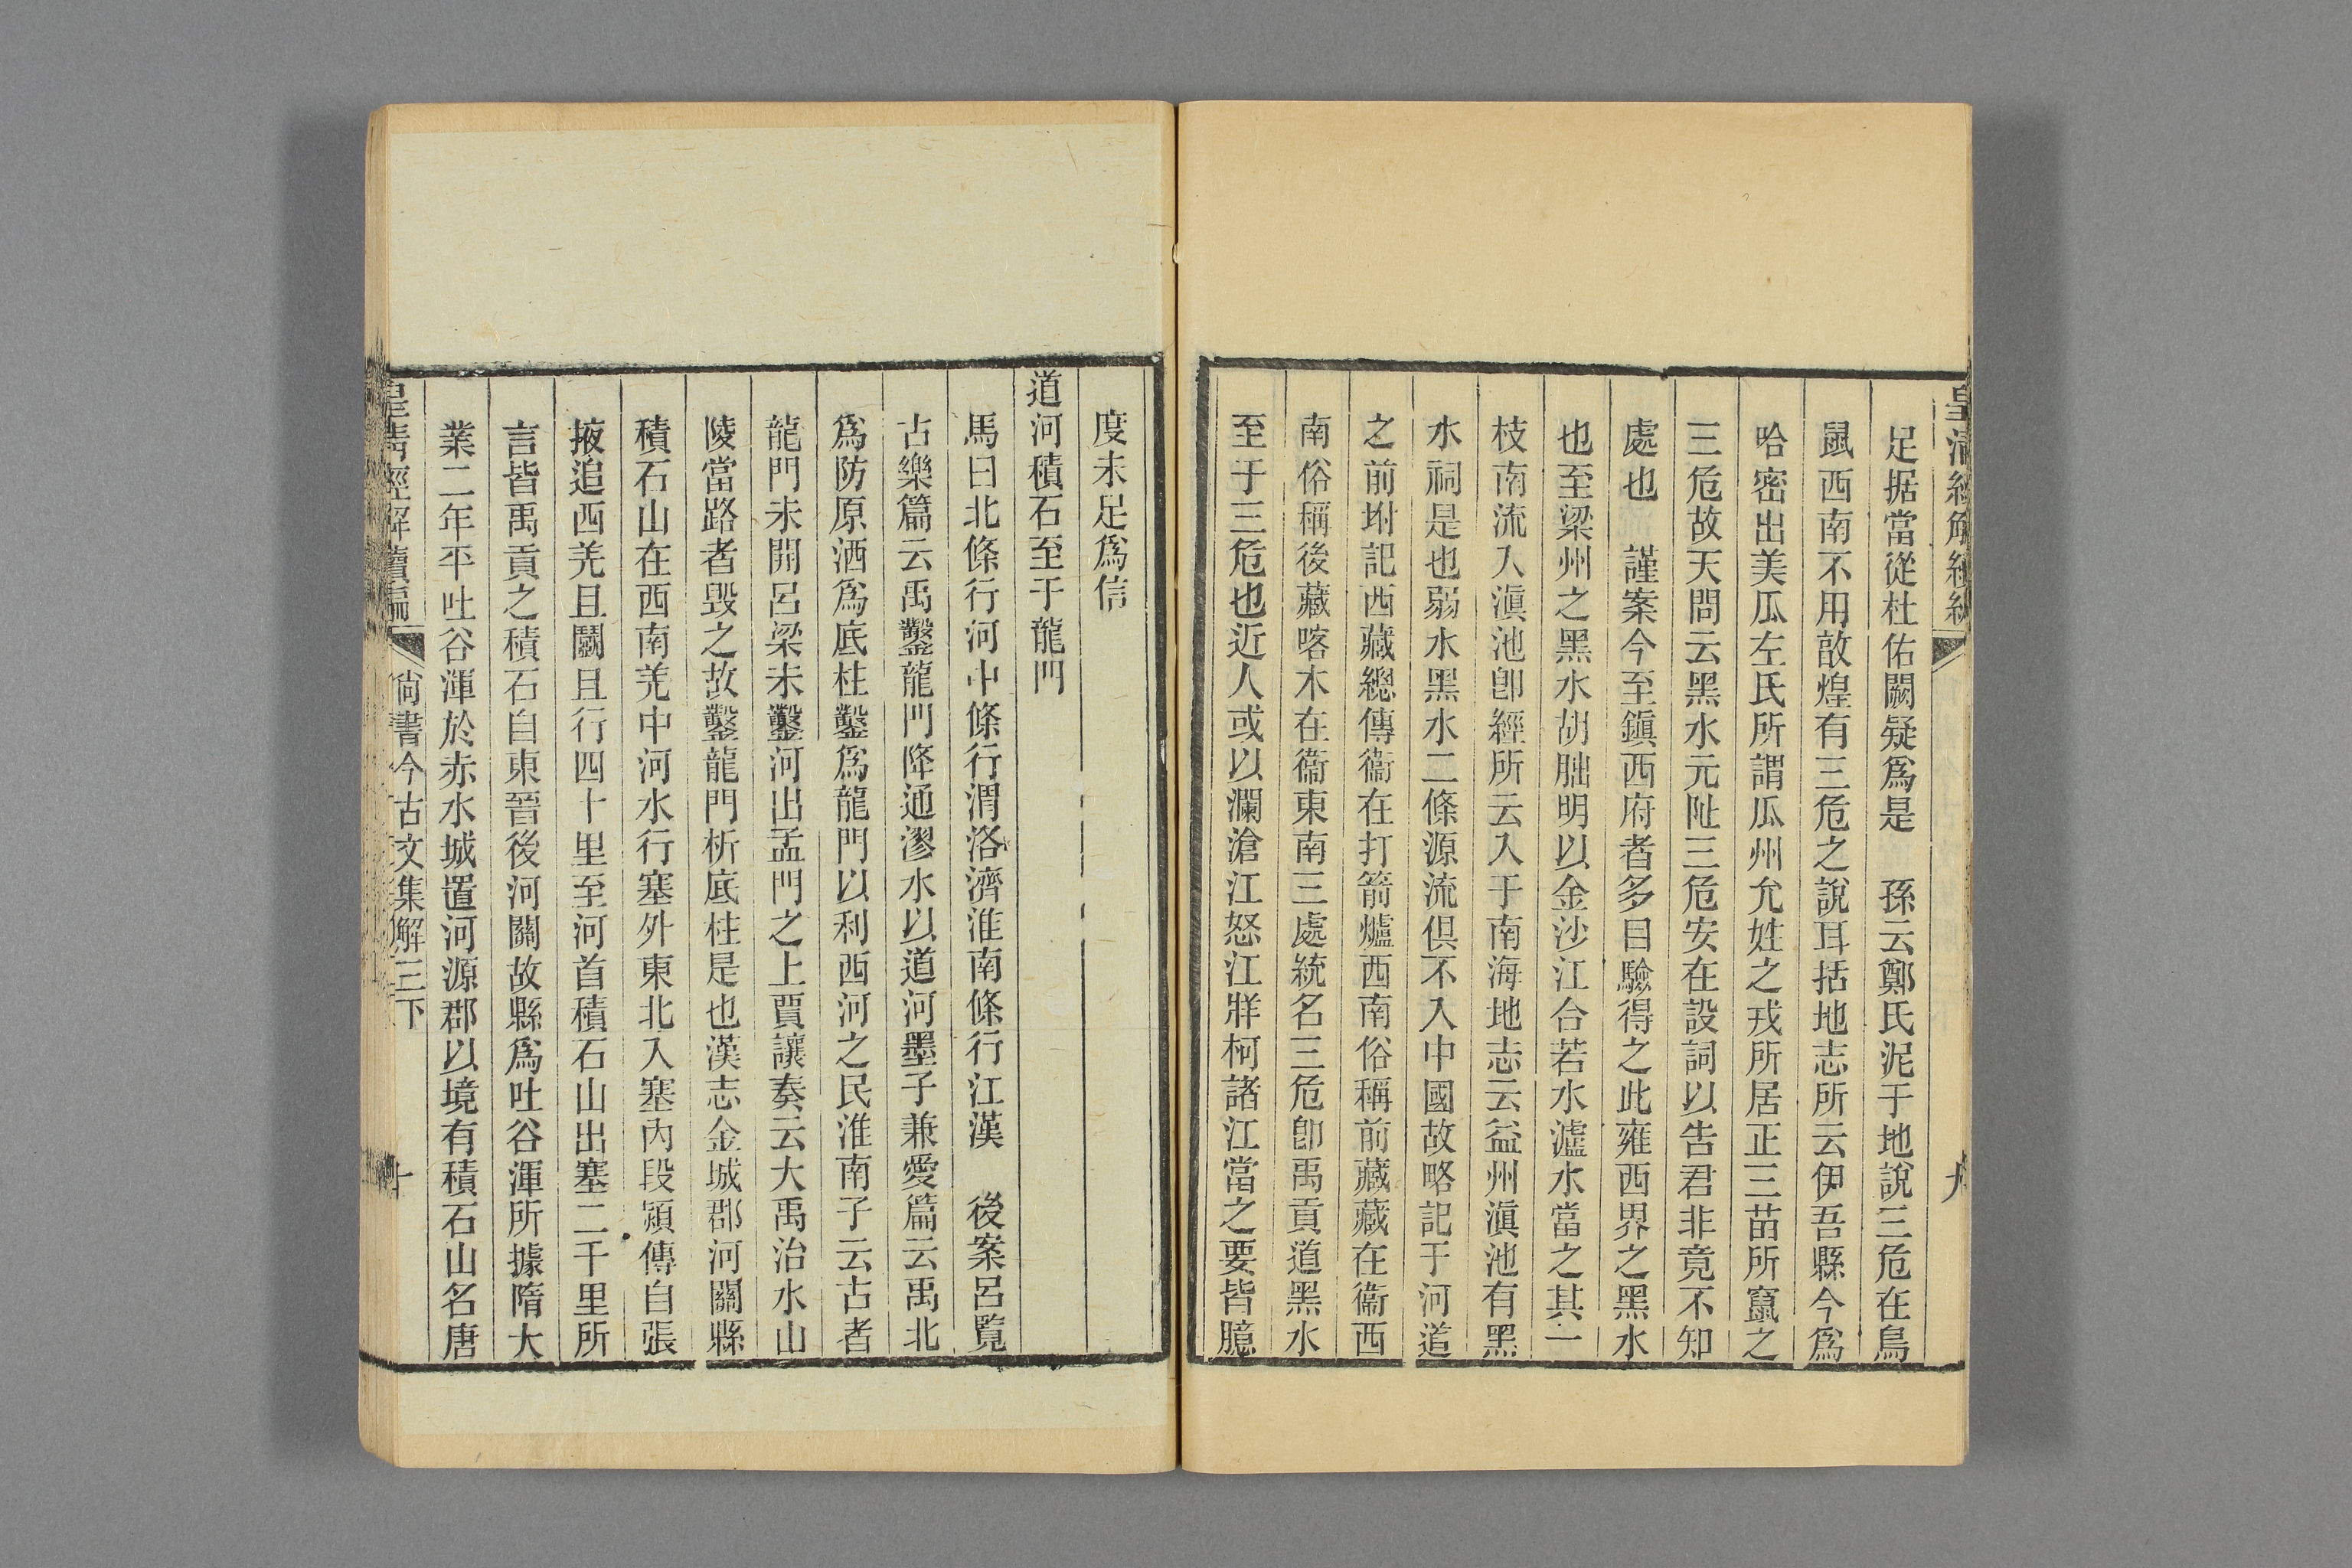 足据當從杜佑闕疑爲是　孫云鄭氏泥于地說三危在鳥
鼠西南不用敨煌有三危之說耳括地志所云伊吾縣今爲
哈密出美瓜左氏所謂瓜州允姓之戎所居正三苗所竄之
三危故天問云黑水元阯三危安在設詞以告君非竟不知
處也　謹案今至鎭西府者多目驗得之此雍西界之黑水
也至梁州之黑水胡朏明以金沙江合若水瀘水當之其一
枝南流入滇池卽經所云入于南海地志云益州滇池有黑
水祠是也弱水黑水二條源流俱不入中國故略記于河道
之前坿記西藏總傳衞在打箭爐西南俗稱前藏藏在衞西
南俗稱後藏喀木在衞東南三處統名三危卽禹貢道黑水
至于三危也近人或以瀾滄江怒江牂柯諸江當之要皆臆
度未足爲信
道河積石至于龍門
馬曰北條行河中條行渭洛濟淮南條行江漢　後案呂覽
古樂篇云禹鑿龍門降通漻水以道河墨子兼愛篇云禹北
爲防原洒爲底柱鑿爲龍門以利西河之民淮南子云古者
龍門未開呂梁未鑿河出孟門之上賈讓奏云大禹治水山
陵當路者毀之故鑿龍門析底柱是也漢志金城郡河關縣
積石山在西南羌中河水行塞外東北入塞內段熲傳自張
掖追西羌且鬭且行四十里至河首積石山出塞二千里所
言皆禹貢之積石自東晉後河關故縣爲吐谷渾所據隋大
業二年平吐谷渾於赤水城置河源郡以境有積石山名唐
皇淸經解續編　尙書今古文集解三下　十